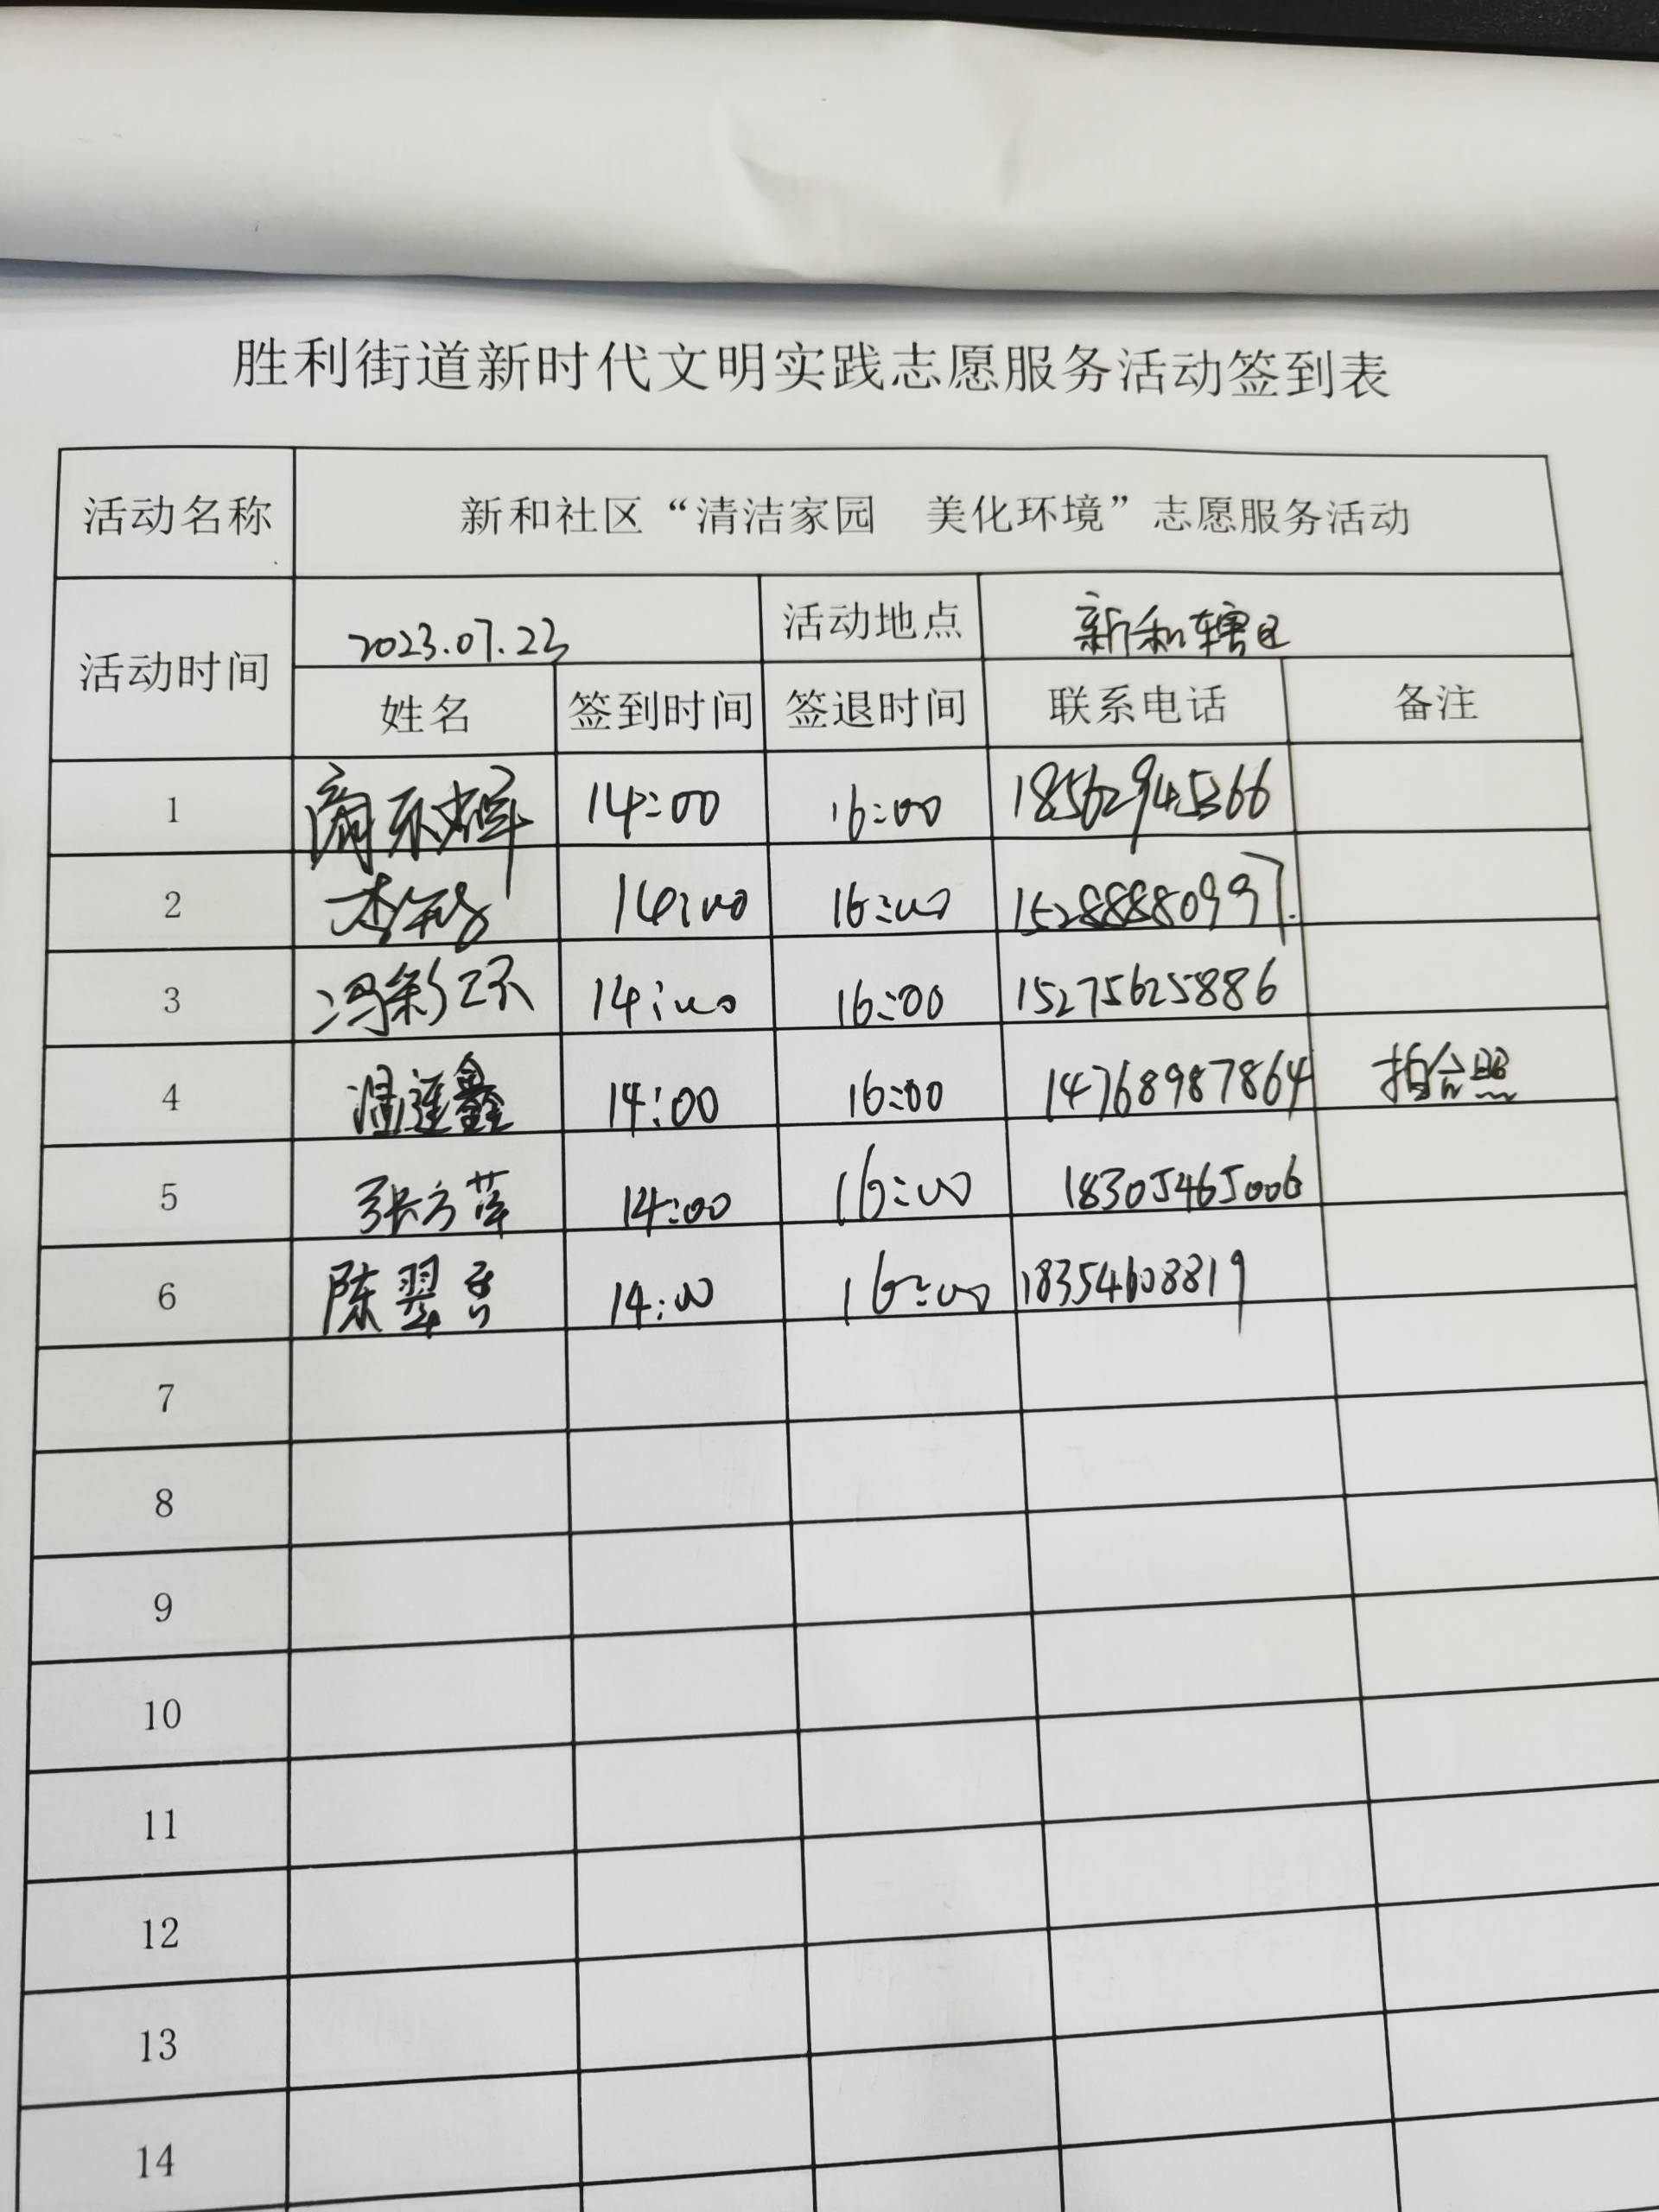 胜利街道新时代文明实践志愿服务活动签到表
活动名称 新和社区“清洁家园 美化环境”志愿服务活动
活动时间 2023.07.23 活动地点 新和辖区
姓名 签到时间 签退时间 联系电话 备注
1 14:00 16:00 18562945366
2 14:00 16:00 15288880997
3 冯彩环 14:00 16:00 15275625886
4 温連鑫 14:00 16:00 14768987864 拍合照
5 张方萍 14:00 16:00 18305465006
6 陈翠香 14:00 16:00 18354608819
7
8
9
10
11
12
13
14